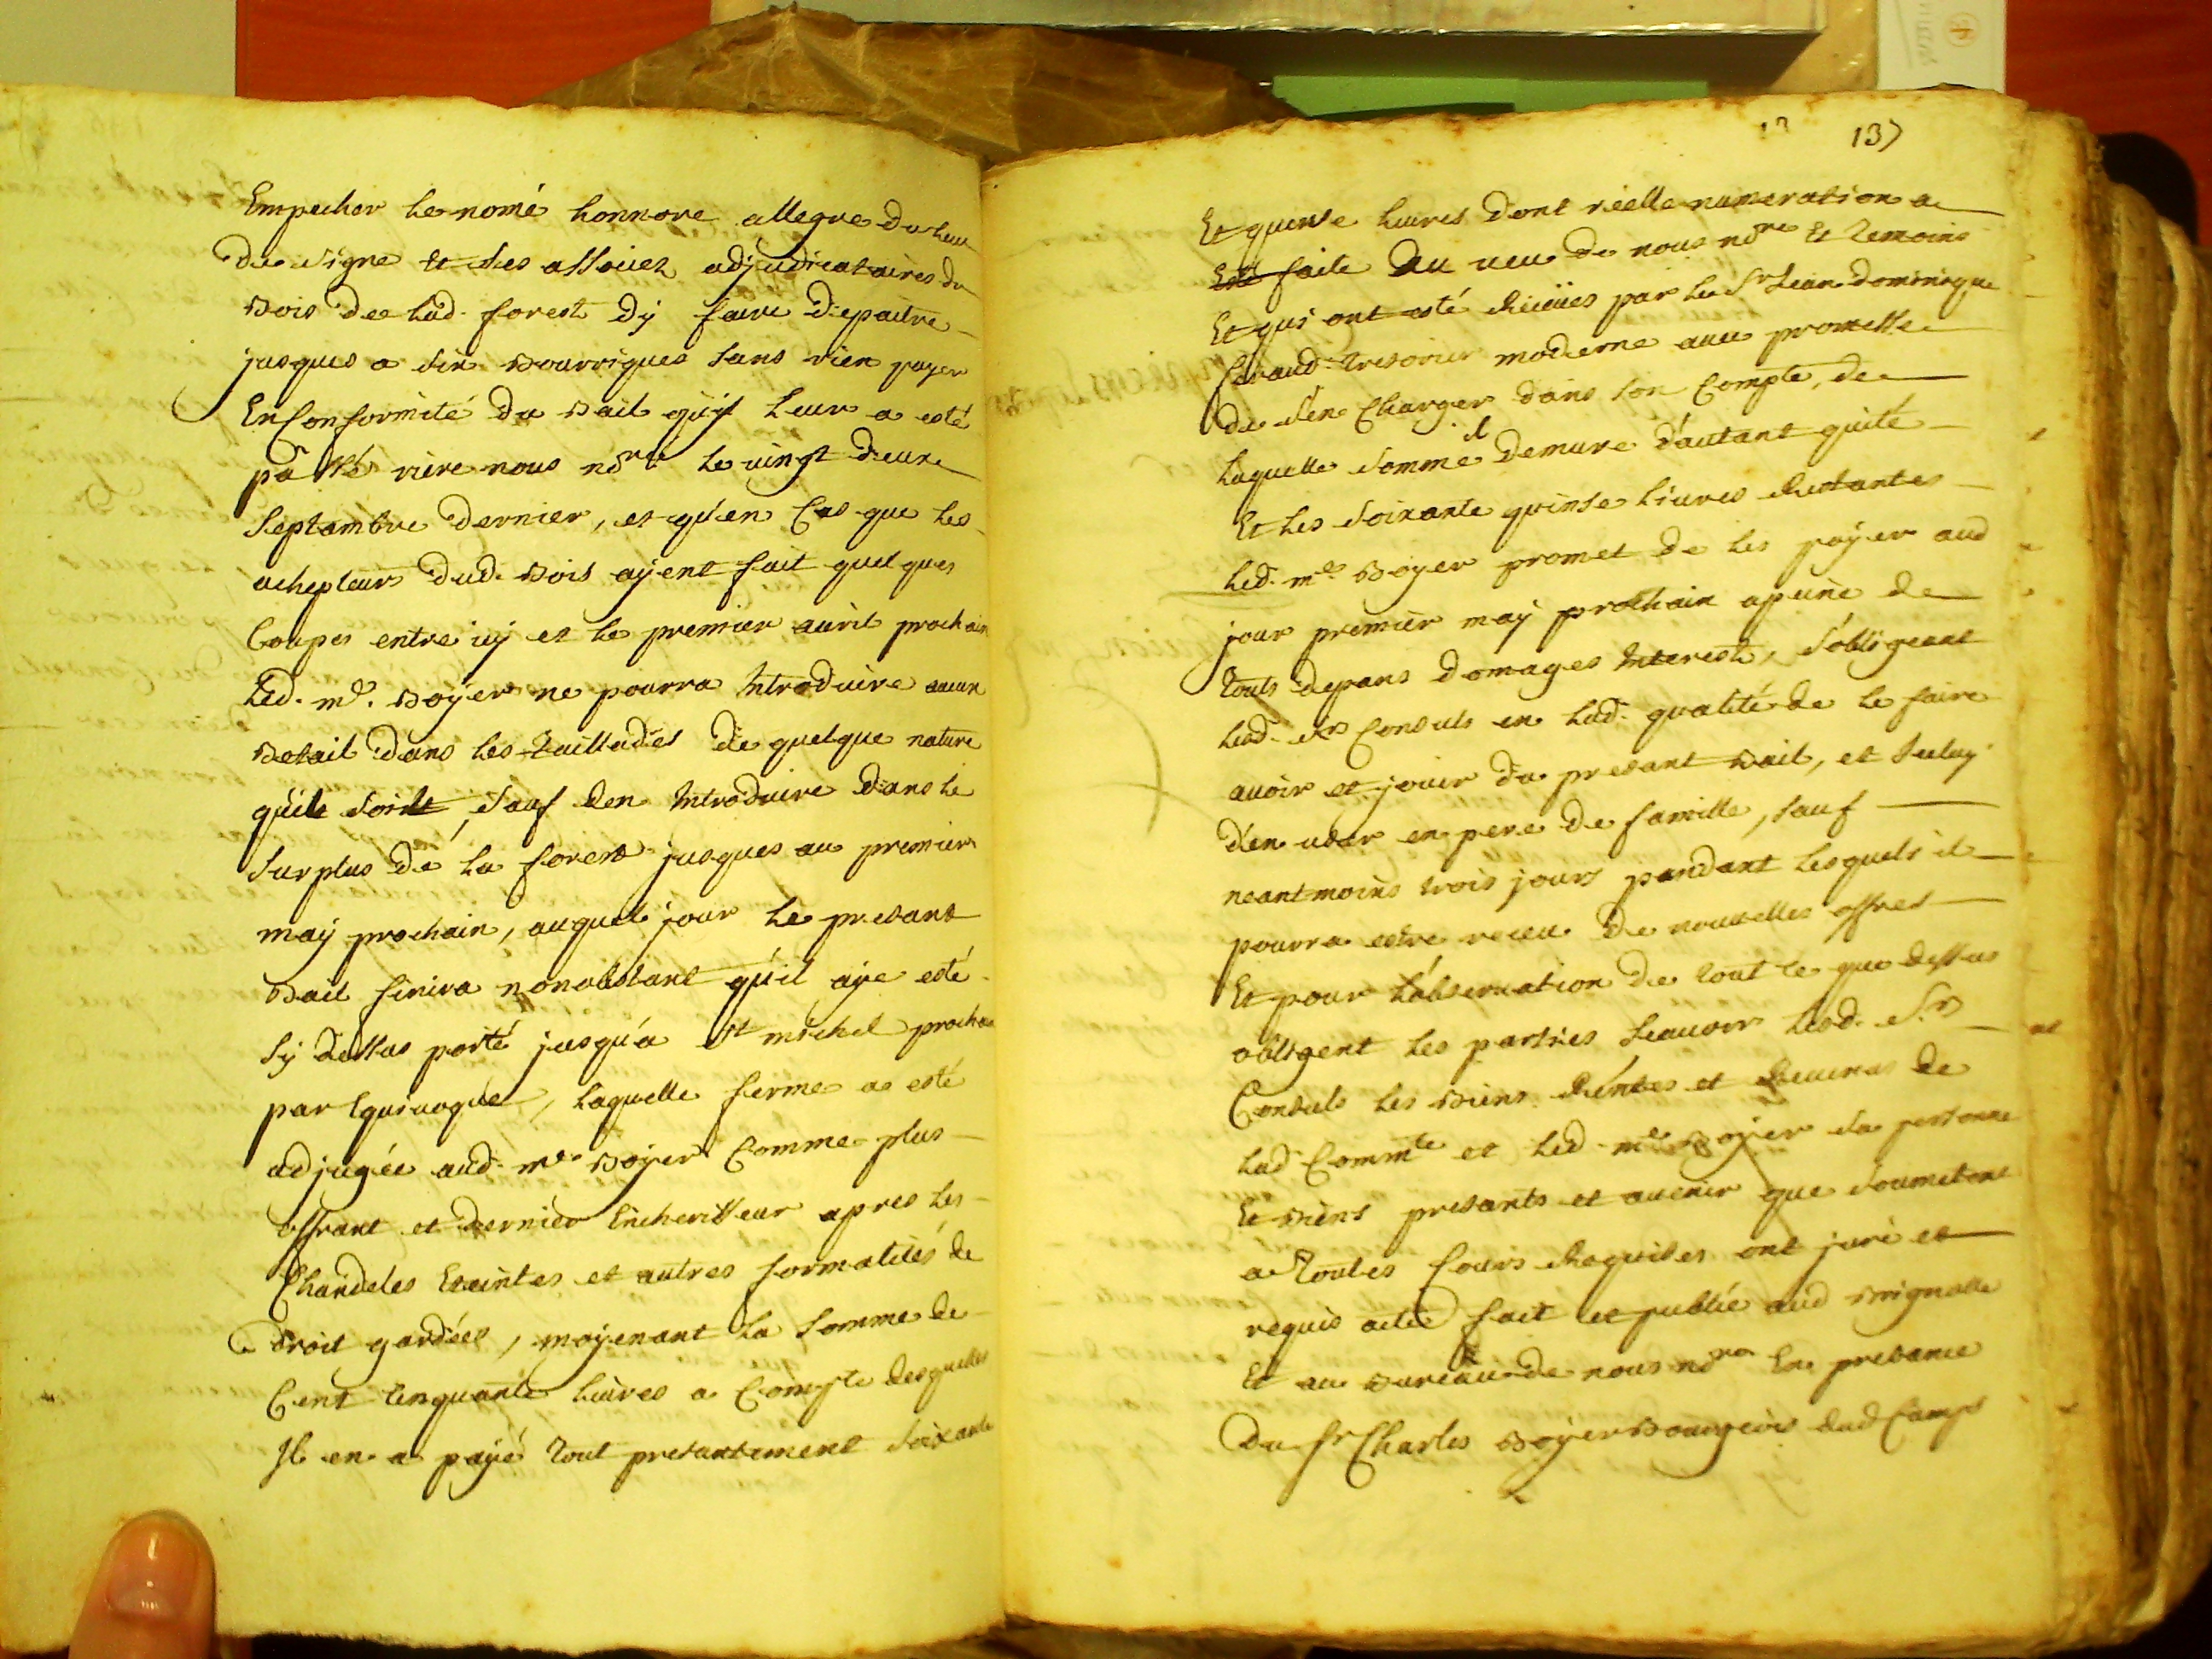 Empecher le nomé honnore allegre du lieu
de Signe et ses assoiies adjudicataires du
bois de lad. forest dÿ faire depaitre
jusques a six bourriques sans rien payer
En Conformité du bail quÿ leur a esté
passé riere nous nore le vingt deux
Septambre dernier, et quen Cas que les
achepteurs dud. bois aÿent fait quelques
Coupes entre icy et le premier auril prochain
led. me. boÿer ne pourra Introduire aucun
betail dans les taillades de quelque nature
quil soit, sauf den Introduire dans le
surplus de la forest jusques au premier
maÿ prochain, auquel jour le presant
bail finira nonobstant quil aÿe esté
sÿ dessus porté jusqu'a St michel prochain
par Equivoque, laquelle ferme a esté
adjugée aud. me. boÿer Comme plus
offrant et dernier Encherisseur apres les
Chandeles Eteintes et autres formalités de
droit gardées, moÿenant la somme de
Cent Cinquante liures a Compte desquelles
Il en a paÿé tout presantement soixante
137
Et quinse liures dont réelle numeration a
Esté faite au veu de nous nore Et temoins
Et qui ont esté Receües par le Sr Jean dominique
tresorier moderne auec promesse
de s'en Charger dans son Compte, de
laquelle somme il demure d'autant quité
Et les soixante quinse liures Restantes
led. me boyer promet de les paÿer aud
jour premier maÿ prochain a peine de
touts depans domages Interests, s'obligeant
lesd. srs Consuls en lad. qualité de le faire
auoir et jouir du presant bail, et Iceluy
d'en user en pere de famille, sauf
neantmoins trois jours pandant lesquels il
pourra estre receu de nouuelles offres
Et pour l'obseruation de tout ce que dessus
obligent les parties scauoir lesd. Srs
Consuls les biens Rentes et Reuenus de
lad Commte et led. me boÿer sa personne
Et biens presants et auenir que soumetent
a toutes Cours Requises ont juré et
requis acte fait et publié aud brignolle
Et au bureau de nous nore En presance
du Sr Charles boÿer bourgeois dud Camps